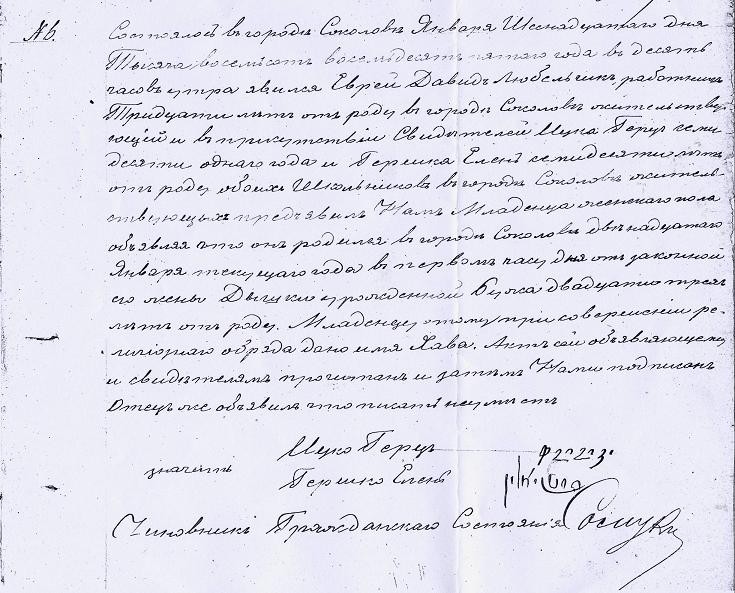 N 6.
Состоялось въ городѣ Соколовѣ Января Шеснадцатаго дня
Тысяча восемьсотъ восемьдесятъ пятаго года въ десять
часовъ утра явился Еврей Давидъ Любельчик, работникъ
Тридцати лѣтъ отъ роду въ городѣ Соколовѣ жительству
ющій и въ присутствіи Свидѣтелей Ицка Герцъ семи
десяти одного года и Гершка Еленъ семидесяти лѣтъ
отъ роду обоихъ Школьниковъ въ городѣ Соколовѣ житель
ствующихъ предъявилъ Намъ Младенца женскаго пола
объявляя что онъ родился въ городѣ Соколовѣ двѣнадцатаго
Января текущаго года въ первомъ часу дня отъ законной
его жены Дышки урожденной двадцати трехъ
лѣтъ отъ роду. Младенцу этому при совершеніи ре
лигіознаго обряда дано имя Хава. Актъ сей объявляющему
и свидѣтелямъ прочитанъ и затѣмъ Нами подписанъ
Отецъ же объявилъ что писать неумѣетъ
значитъ
Ицко Герцъ
Гершко Еленъ
Чиновникъ Гражданскаго Состоянія